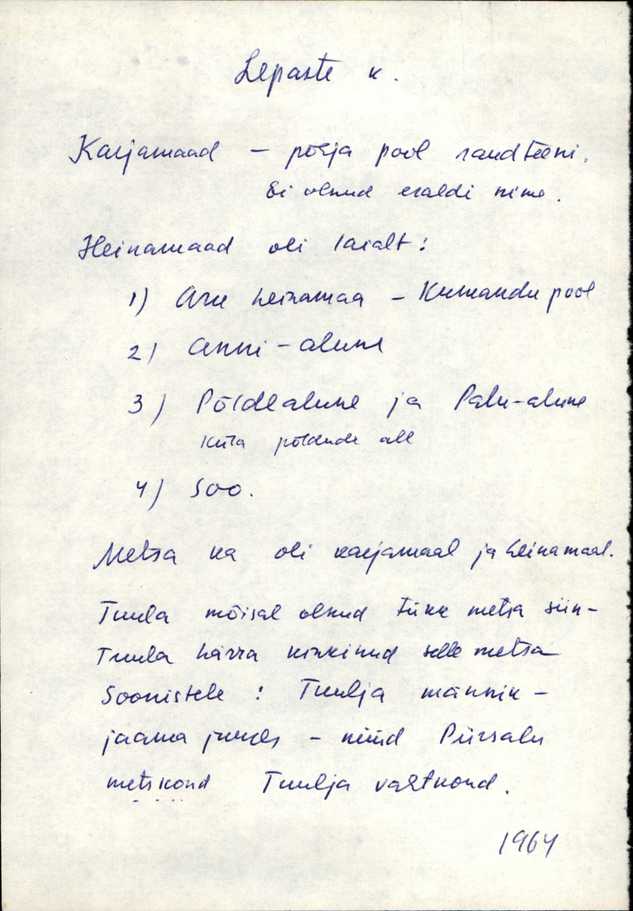 Lepaste k.
Karjamaad – põhja pool raudteeni.
Ei olnud eraldi nime.
Heinamaad oli laialt:
1) Aru heinamaa – Kumandu pool
2) Anni-alune
3) Põldealune ja Palu-alune
küla põldude all
4) Soo.
Metsa ka oli karjamaal ja heinamaal.
Tuula mõisal olnud tükk metsa siin –
Tuula härra kinkinud selle metsa
Soonistele: Tuulja männik –
jaama juures – nüüd Piirsalu
metskond Tuulja vahtkond.
1964